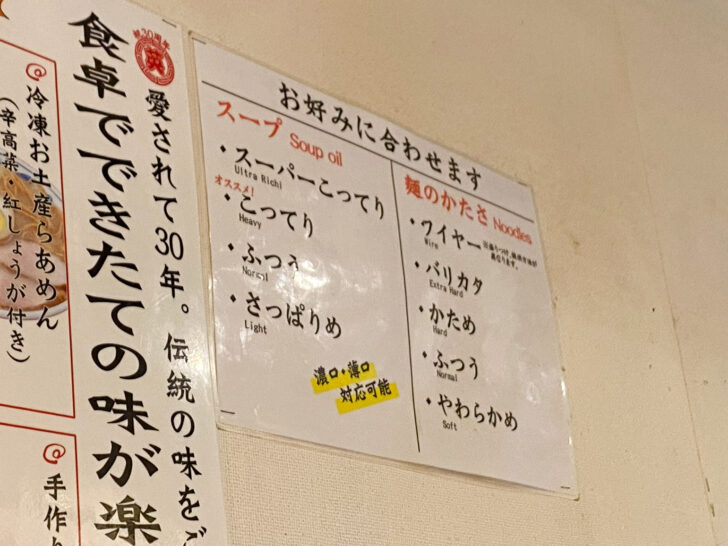 お好みに合わせます
スープ Soup oil
・スーパーこってり
Ultra Rich!
オススメ!
・こってり
Heavy
・ふつう
Normal
・さっぱりめ
Light
濃口・薄口
対応可能
麺のかたさ Noodles
・ワイヤー
Wire
・バリカタ
Extra Hard
・かため
Hard
・ふつう
Normal
・やわらかめ
Soft
祝30周年
英
愛されて30年。伝統の味をご
食卓でできたての味が楽
@冷凍お土産らあめん
(辛高菜・紅しょうが付き)
@手作り